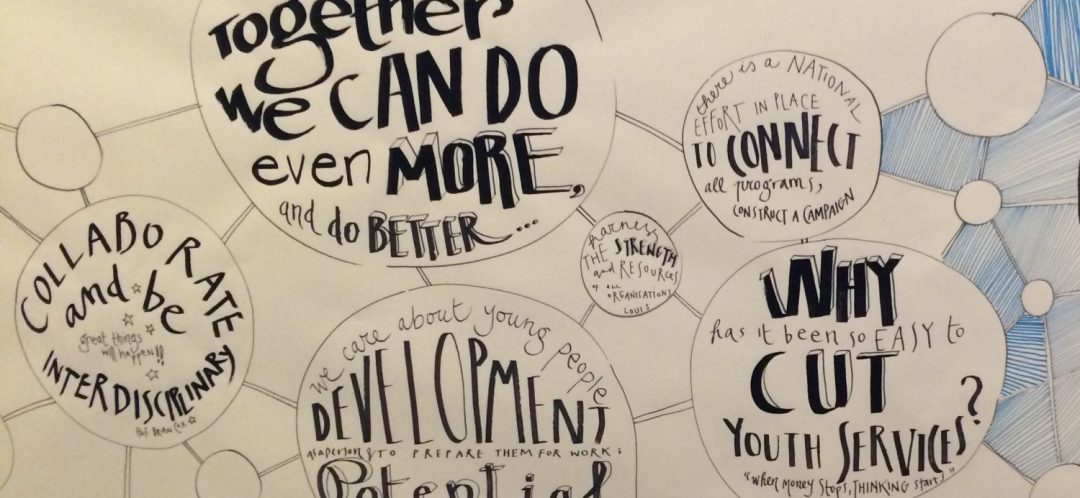 Together
We CAN DO
even MORE,
and do BETTER...
there is a NATIONAL
EFFORT IN PLACE
TO CONNECT
all programs,
CONSTRUCT A CAMPAIGN
COLLABORATE
and be
great things
will happen!!
INTERDISCIPLINARY
Prof. BRIAN COX
harness
THE STRENGTH
and RESOURCES
of all
ORGANISATIONS
WHY
has it been so EASY to
CUT
YOUTH SERVICES?
"When money stops, THINKING starts"
we care about young people
DEVELOPMENT
as a person & TO PREPARE THEM FOR WORK:
Potential